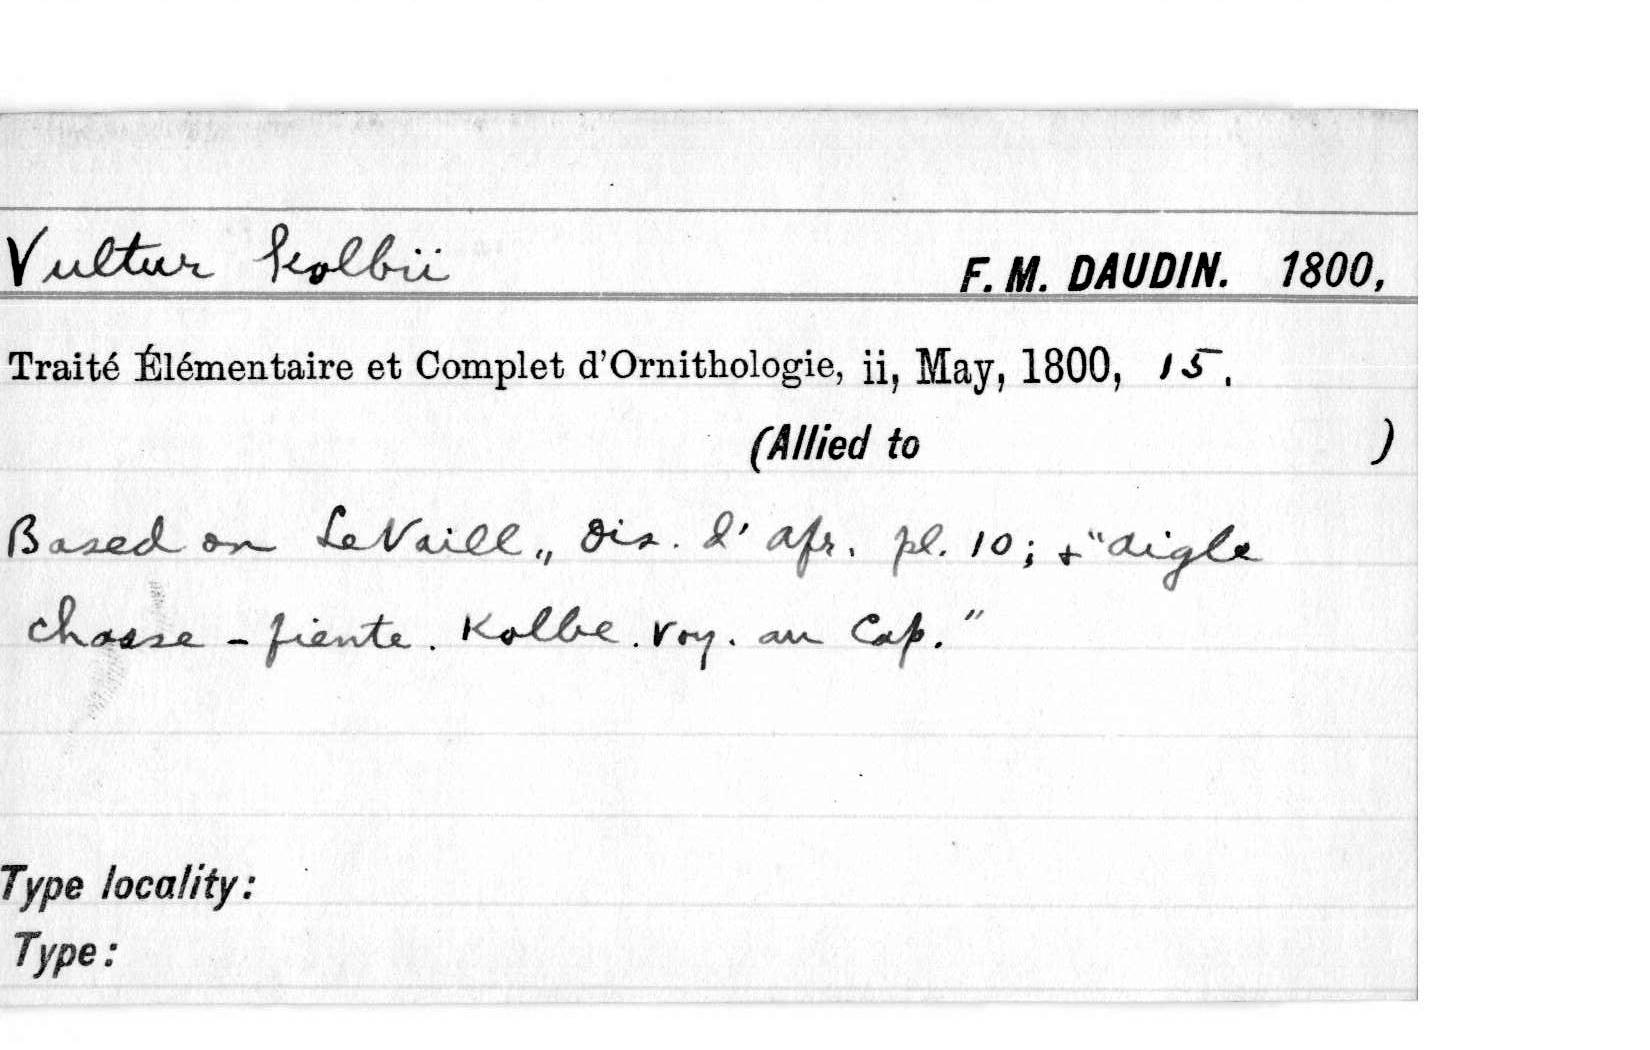 Vultur kolbii F. M. DAUDIN. 1800,
Traité Élémentaire et Complet d'Ornithologie, ii, May, 1800, 15.
(Allied to )
Based on LeVaill., Ois. d'afr. pl. 10; + "aigle
chasse-fiente. Kolbe. Voy. au Cap."
Type locality:
Type: